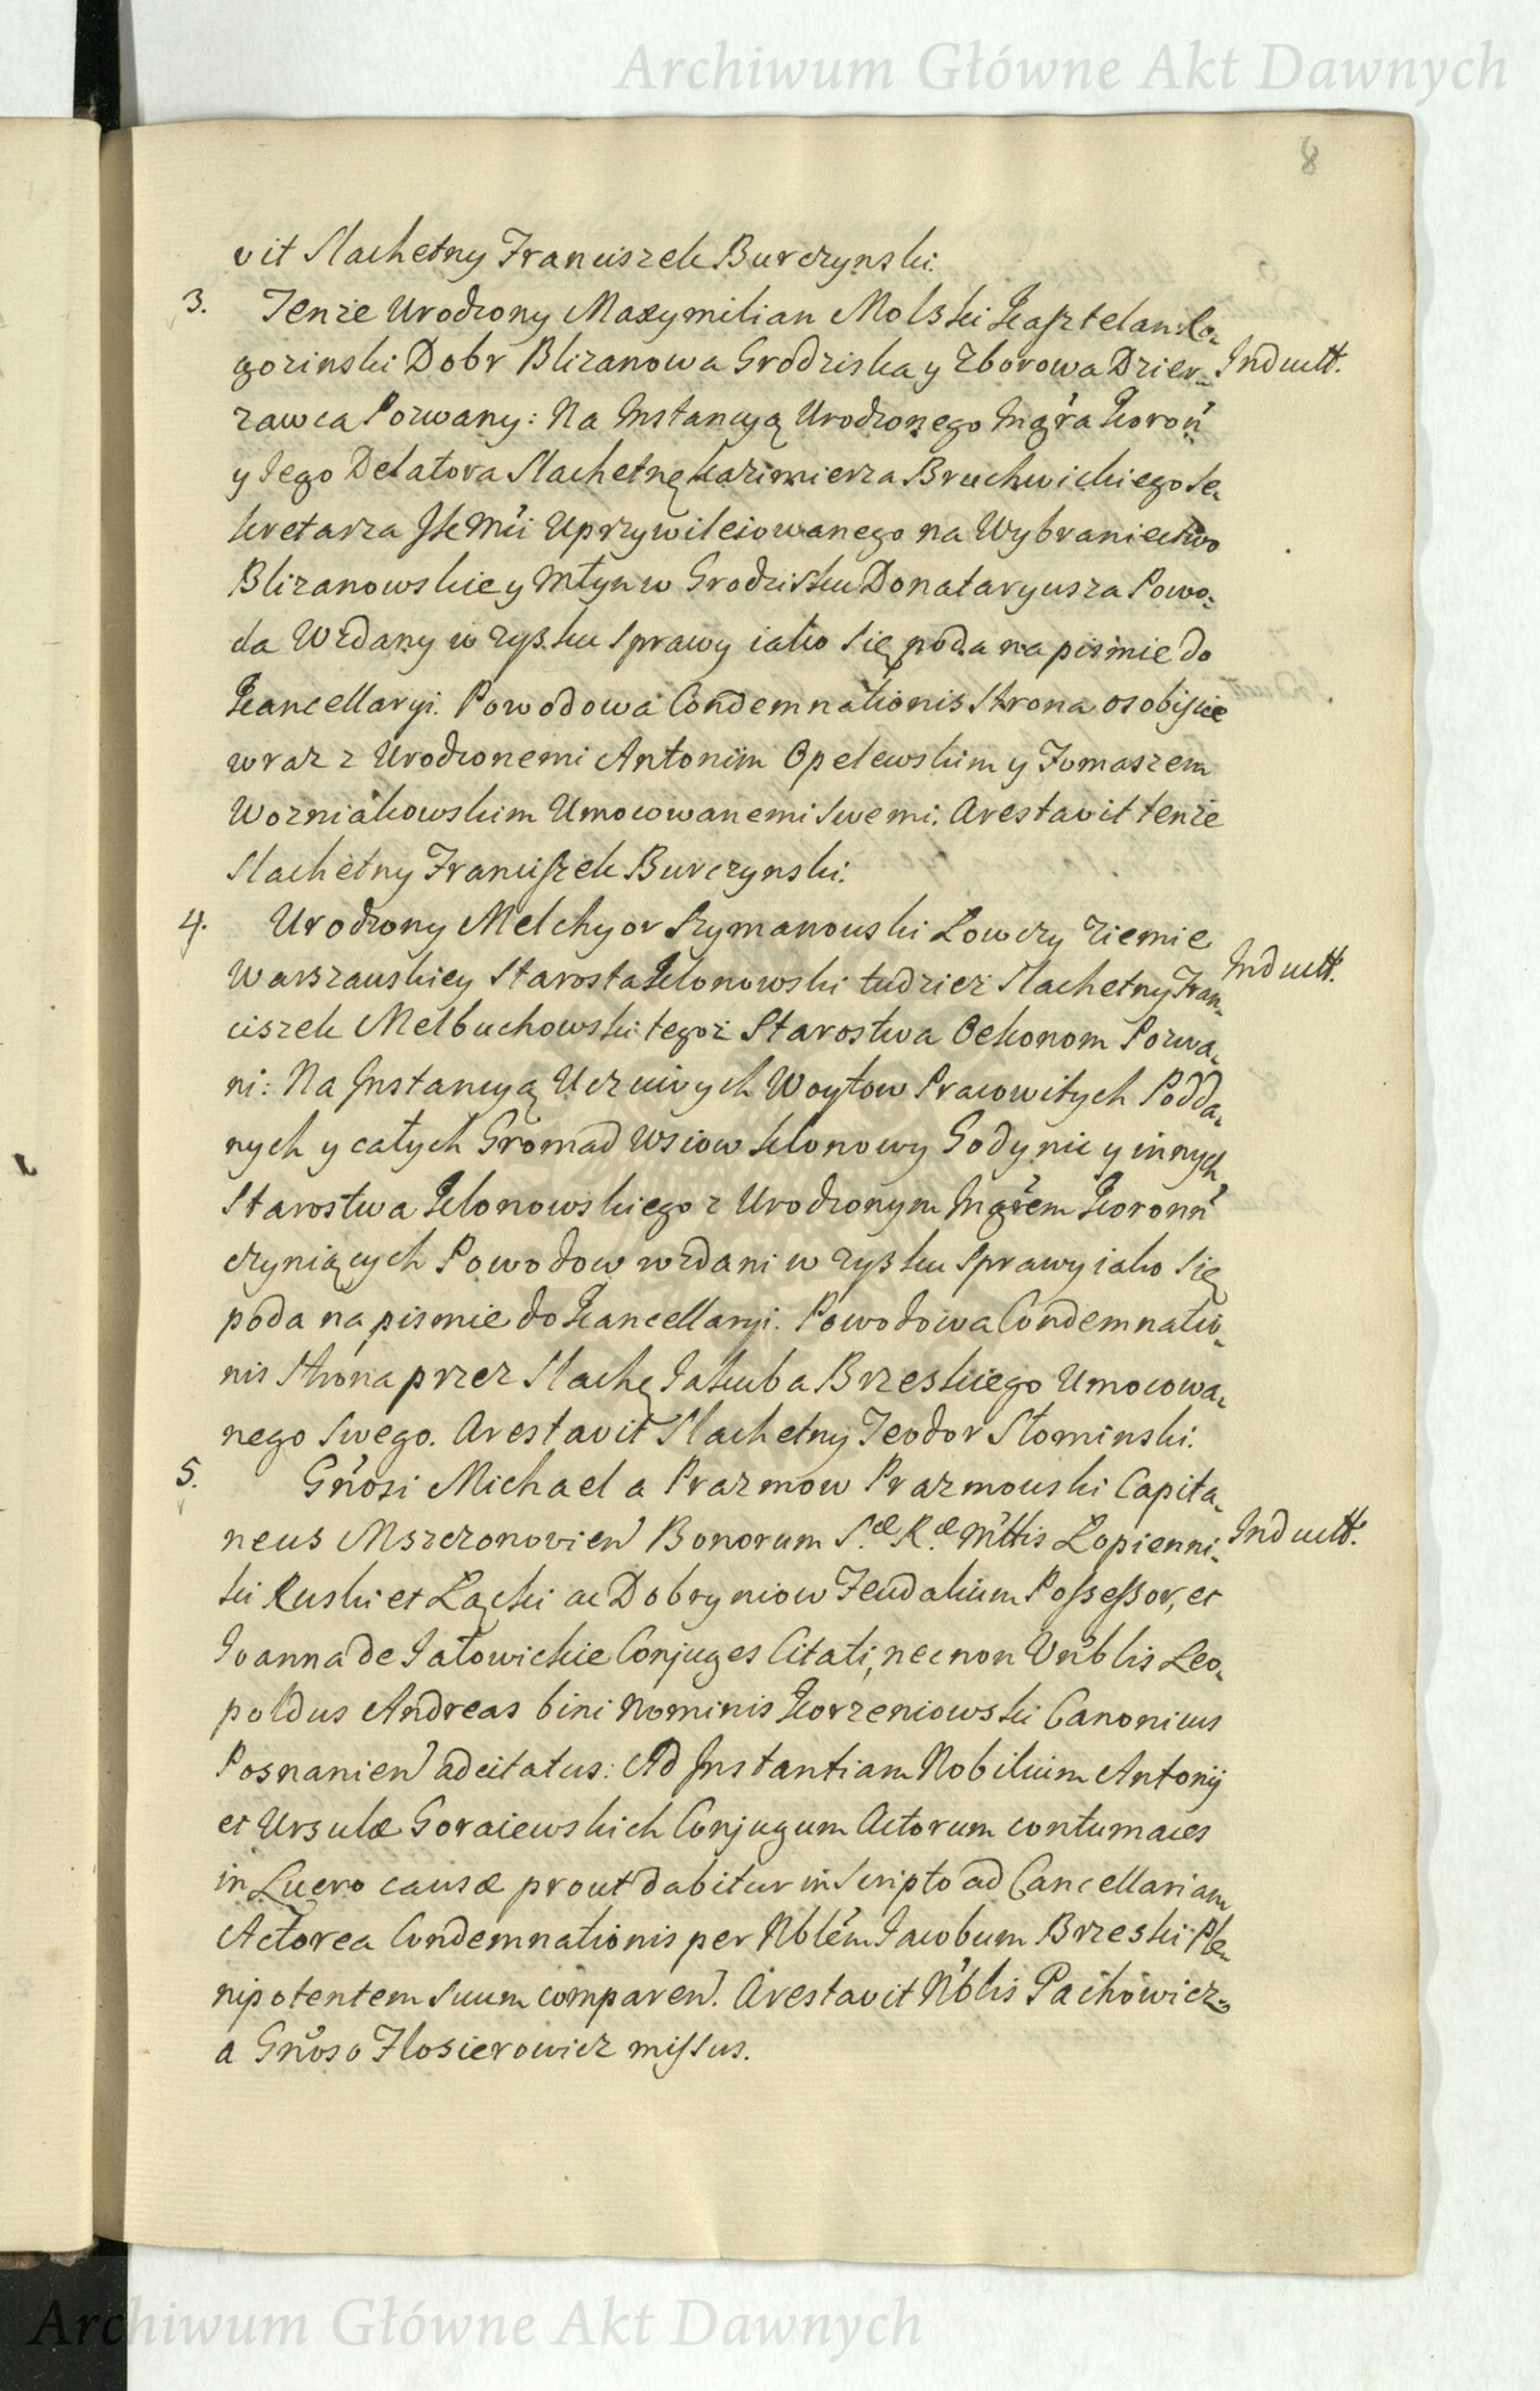 Archiwum Główne Akt Dawnych
8
vit Slachetny Franciszek Burczynski.
3. Tenze Urodzony Maxymilian Molski Kasztelan Ro-
gozinski Dobr Blizanowa Grodziska y Zborowa Dzier- Indult.
zawca Pozwany: Na Instancyą Urodzonego Ingr̃a Koroñ
y Jego Delatora Slachetnę Kazimierza Bruchwickiego Se-
kretarza JKMći Uprzywileiowanego na Wybraniectwo
Blizanowskie y Młyn w Grodzisku Donataryusza Powo-
da Wzdany w zysku Sprawy iako się poda na pismie do
Kancellaryi. Powodowa Condemnationis Strona osobiscie
wraz z Urodzonemi Antonim Opelewskim y Tomaszem
Wozniakowskim Umocowanemi Swemi. Arestavit tenze
Slachetny Franciszek Burczynski.
4. Urodzony Melchyor Szymanowski Łowczy Ziemie
Warszauskiey Starosta Klonowski tudziez Slachetny Fran- Indult.
ciszek Melbuchowski tegoz Starostwa Oekonom Pozwa-
ni: Na Instancyą Uczciwych Woytow Pracowitych Podda-
nych y całych Gromad Wsiow Klonowy Godynic y innych
Starostwa Klonowskiego z Urodzonym Ingr̃em Koronñ
czyniących Powodow wzdani w zysku Sprawy iako się
poda na pismie do Kancellaryi. Powodowa Condemnatio-
nis Strona przez Slachę Jakuba Brzeskiego Umocowa-
nego Swego. Arestavit Slachetny Teodor Słominski.
5. Gñosi Michael a Prazmow Prazmouski Capita-
neus Mszczonovień Bonorum S.æ R.æ Mttis Lopienni- Indult.
ki Ruski et Lącki ac Dobryniow Feudalium Possessor, et
Joanna de Jatowickie Conjuges Citati, nec non Vñblis Leo-
poldus Andreas bini Nominis Korzeniowski Canonicus
Posnanień adcitatus: Ad Instantiam Nobilium Antonij
et Ursulæ Goraiewskich Conjugum Actorum contumaces
in Lucro causæ prout dabitur in Scripto ad Cancellariam
Actorea Condemnationis per Nblem Jacobum Brzeski Ple-
nipotentem Suum compareń. Arestavit Nblis Pachowicz
a Gñoso Flosierowicz missus.
Archiwum Główne Akt Dawnych